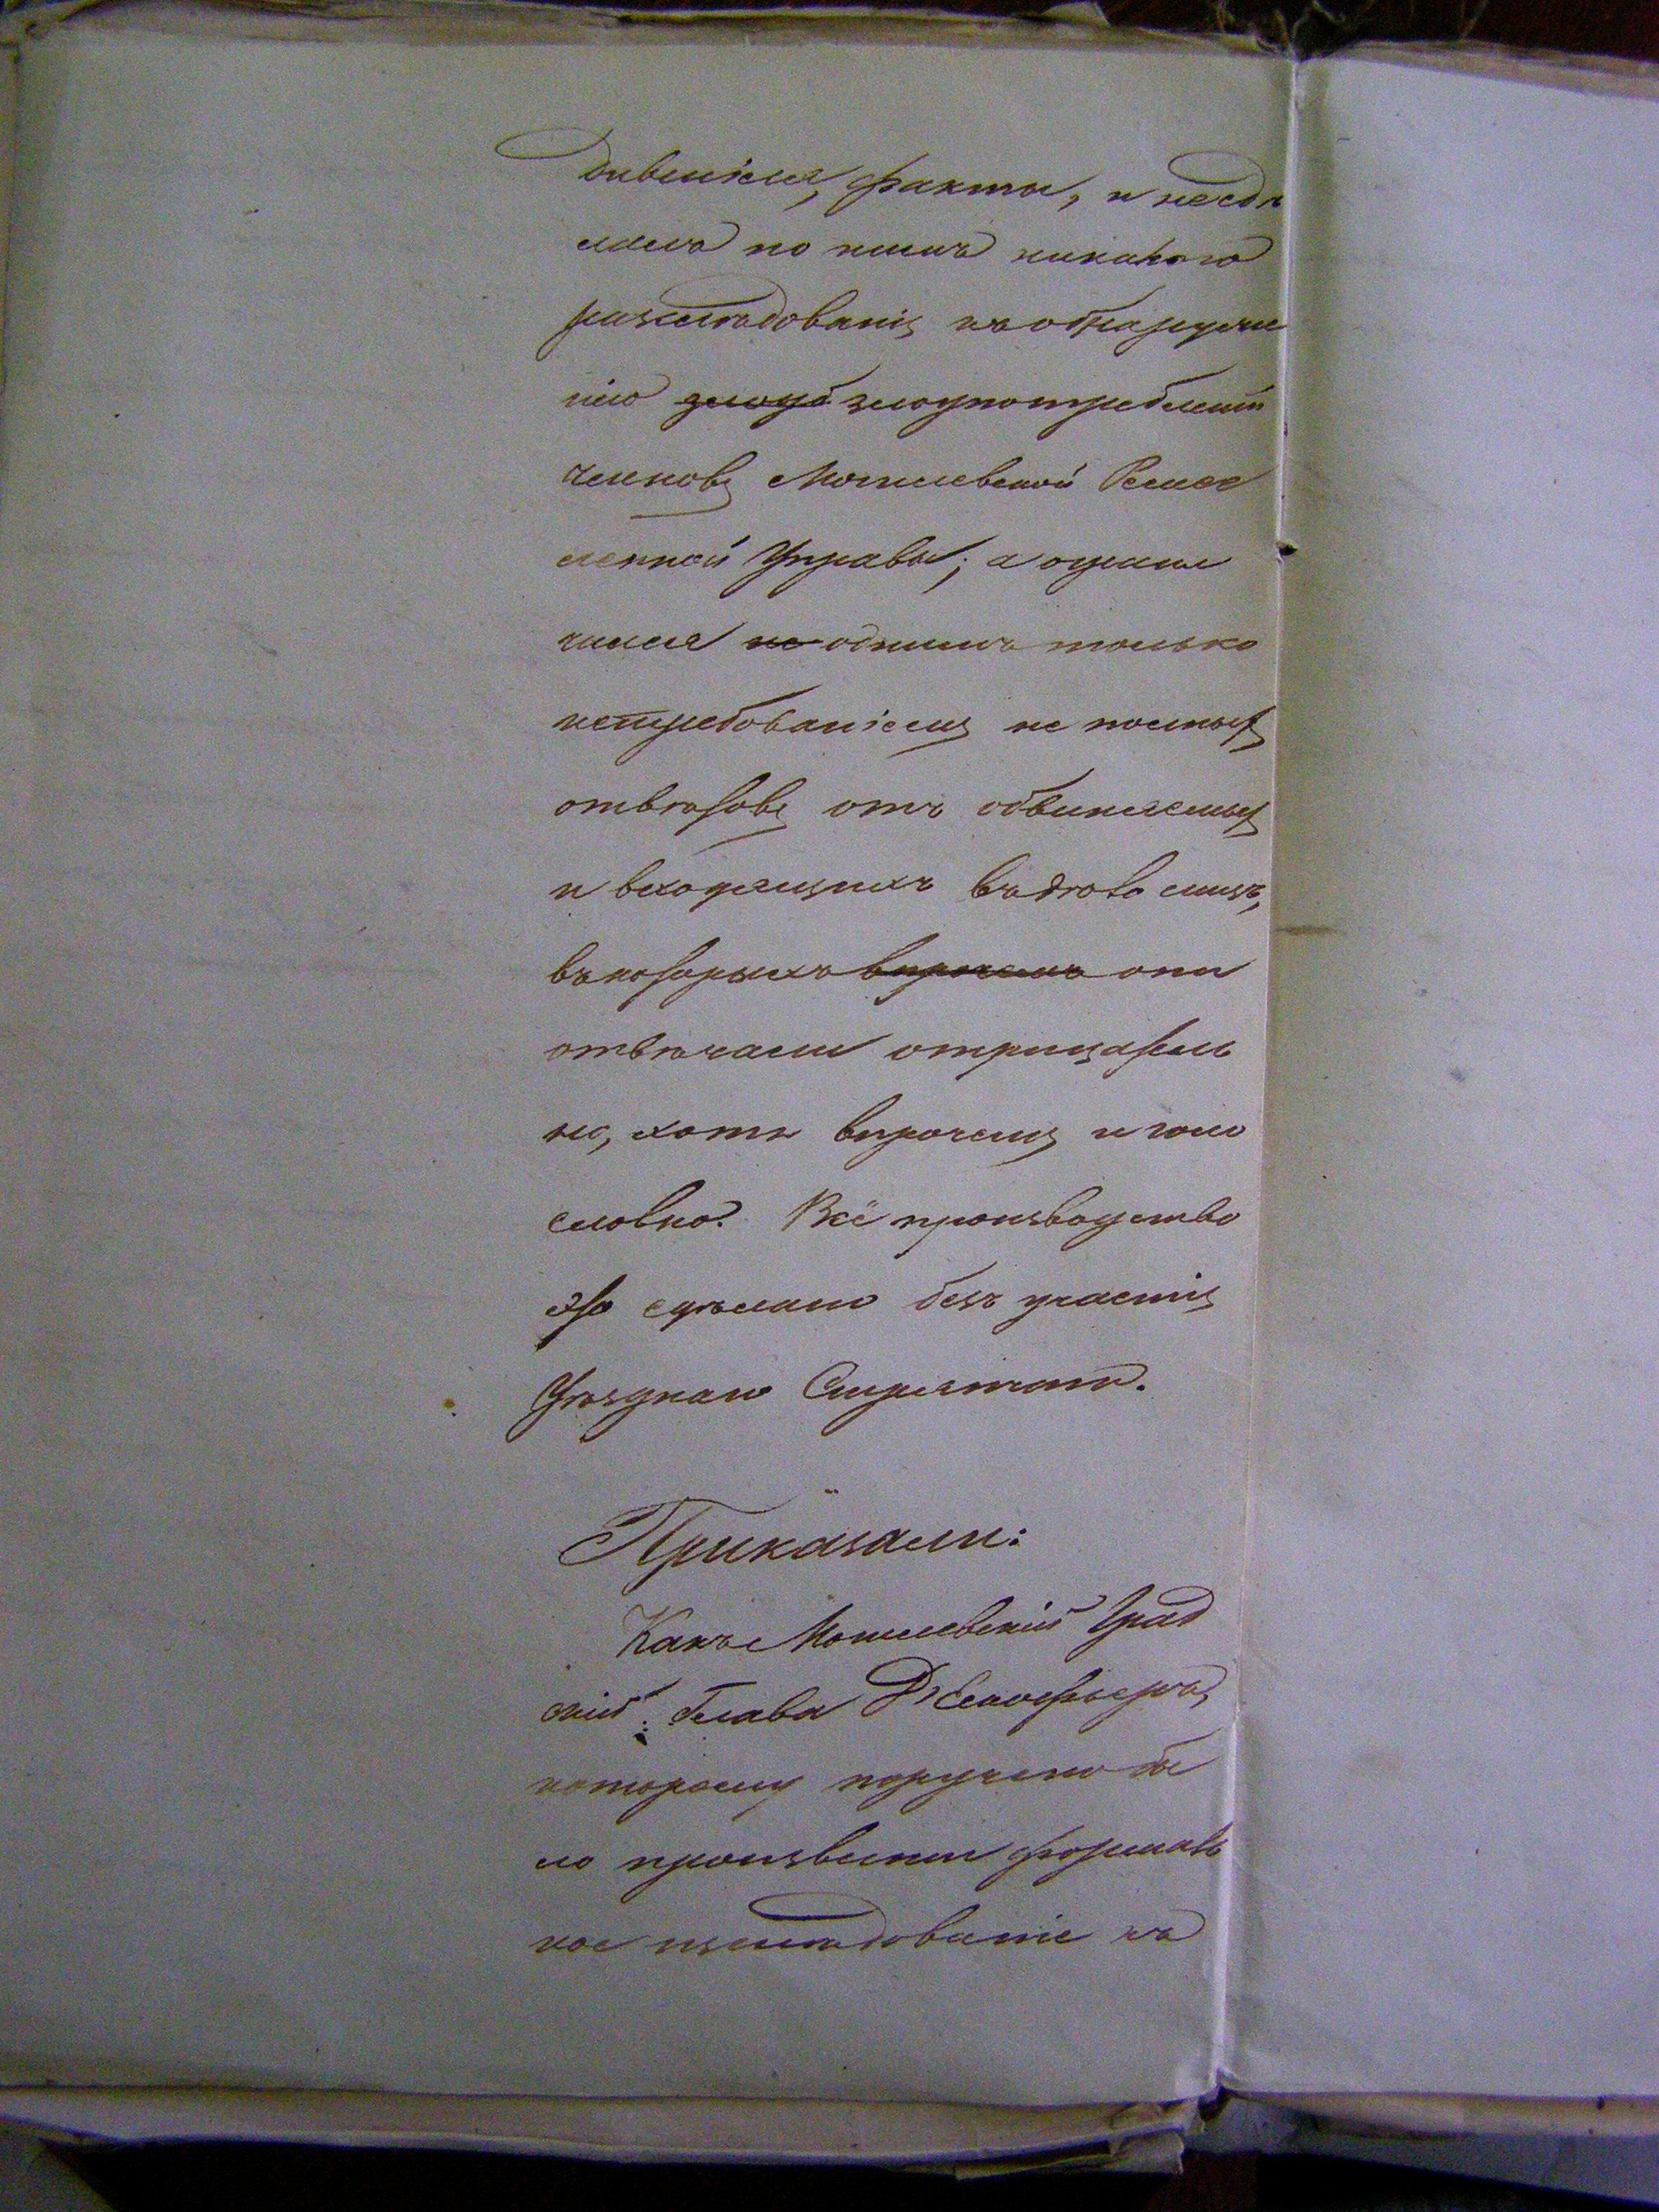 дившіеся, факты, и несдѣ
лалъ по нимъ никакого
разслѣдованія къ обнаруже
нію злоуб злоупотребленій
членовъ Могилевской Ремес
ленной Управы; а ограни
чился не однимъ только
истребованіемъ не полныхъ
отвѣтовъ отъ обвиняемыхъ
и входящихъ въ дѣло лицъ,
въ которыхъ впрочемъ они
отвѣчали отрицатель
но, хотя впрочемъ и голо
словно. Всё производство
это сдѣлано безъ участія
Уѣзднаго Стряпчаго.
Приказали:
Какъ Могилевскій Град
скій Глава
которому поручено бы
ло произвести формаль
ное изслѣдованіе къ